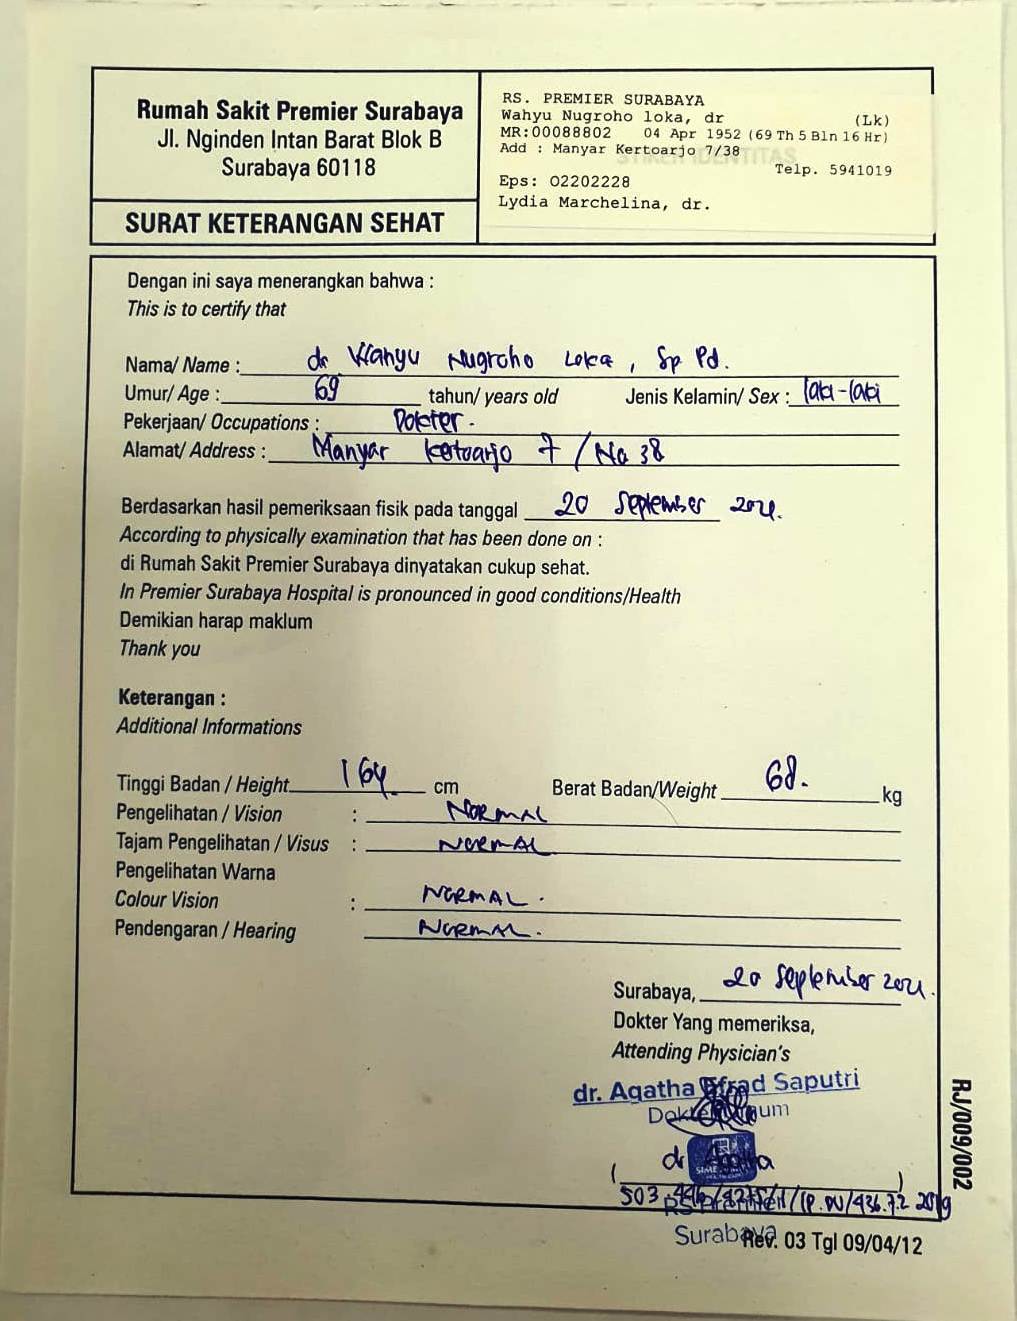 Rumah Sakit Premier Surabaya
Jl. Nginden Intan Barat Blok B
Surabaya 60118
SURAT KETERANGAN SEHAT
RS. PREMIER SURABAYA
Wahyu Nugroho loka, dr (Lk)
MR:00088802 04 Apr 1952 (69 Th 5 Bln 16 Hr)
Add : Manyar Kertoarjo 7/38
STIKER IDENTITAS
Telp. 5941019
Eps: 02202228
Lydia Marchelina, dr.
Dengan ini saya menerangkan bahwa :
This is to certify that
Nama/ Name : dr Wahyu Nugroho Loka, Sp Pd.
Umur/ Age : 69 tahun/ years old Jenis Kelamin/ Sex : laki-laki
Pekerjaan/ Occupations : Dokter.
Alamat/ Address : Manyar Kertoarjo 7 / No 38
Berdasarkan hasil pemeriksaan fisik pada tanggal 20 September 2021.
According to physically examination that has been done on :
di Rumah Sakit Premier Surabaya dinyatakan cukup sehat.
In Premier Surabaya Hospital is pronounced in good conditions/Health
Demikian harap maklum
Thank you
Keterangan :
Additional Informations
Tinggi Badan / Height 164 cm Berat Badan/Weight 68. kg
Pengelihatan / Vision : NORMAL
Tajam Pengelihatan / Visus : NORMAL
Pengelihatan Warna
Colour Vision : NORMAL.
Pendengaran / Hearing NORMAL.
Surabaya, 20 September 2021.
Dokter Yang memeriksa,
Attending Physician's
dr. Agatha Saputri
Dokter Umum
dr Agatha
( )
RS Premier
Surabaya
Rev. 03 Tgl 09/04/12
RJ/009/002